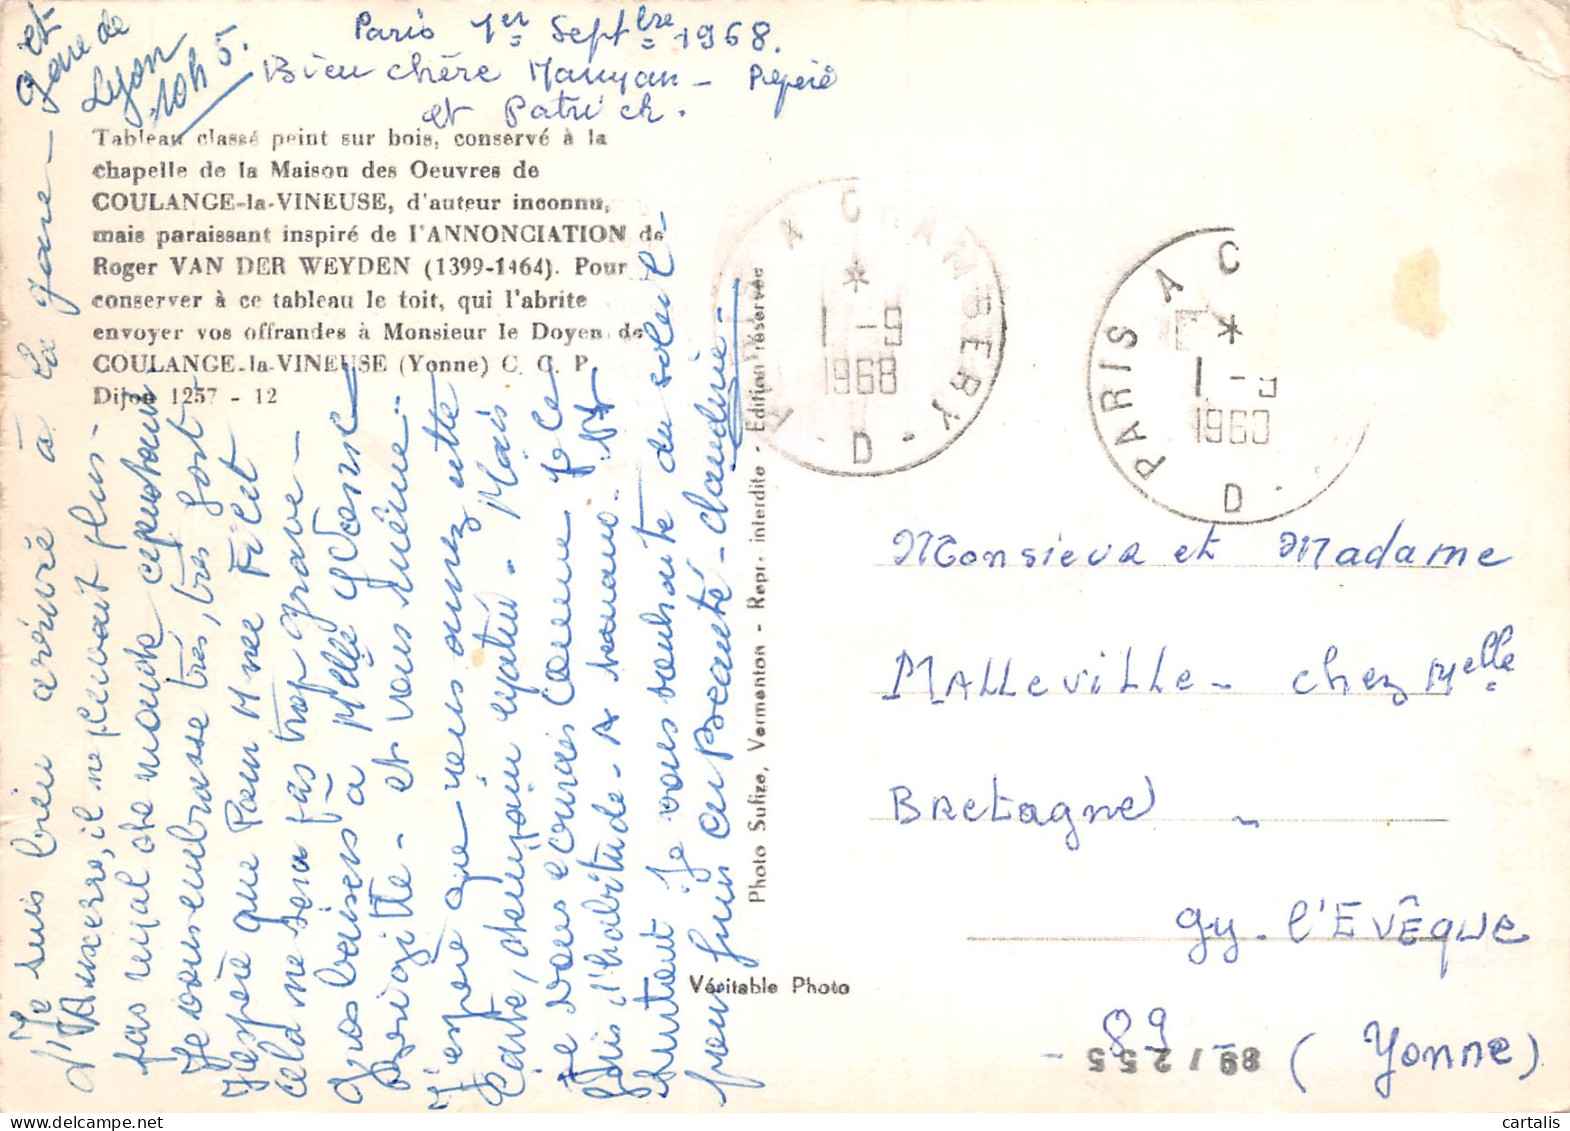 Paris 1er Septbre 1968.
Bien chère Manyan - Pépère
et Patrick.
Je suis bien arrivé à la gare - et gare de Lyon 10h 5.
d'Auxerre, il ne pleuvait plus -
pas mal de monde cependant
Je vous embrasse très, très fort
J'espère que pour Mme Filet
cela ne sera pas trop grave -
Gros baisers à Melle Yvonne
Brigitte - et vous même -
J'espère que vous aurez cette
carte, demain matin - Mais
Je vous écrirais comme je le
fais d'habitude - A demain.
Je vous souhaite du soleil -
pour Guis au Beauté - Claudine -
Tableau classé peint sur bois, conservé à la
chapelle de la Maison des Oeuvres de
COULANGE-la-VINEUSE, d'auteur inconnu,
mais paraissant inspiré de l'ANNONCIATION de
Roger VAN DER WEYDEN (1399-1464). Pour
conserver à ce tableau le toit, qui l'abrite
envoyer vos offrandes à Monsieur le Doyen de
COULANGE-la-VINEUSE (Yonne) C. C. P.
Dijon 1257 - 12
Photo Sutize, Vermenton - Repr. interdite - Edition réservée
Véritable Photo
A CHAMBERY
* 1 - 9
1968
D
PARIS A C
* 1 - 9
1968
D
Monsieur et Madame
MALLEVILLE - chez Melle
BRETAGNE -
gy. l'EVÊQUE
- 89 - (Yonne)
89 / 255
cartalis